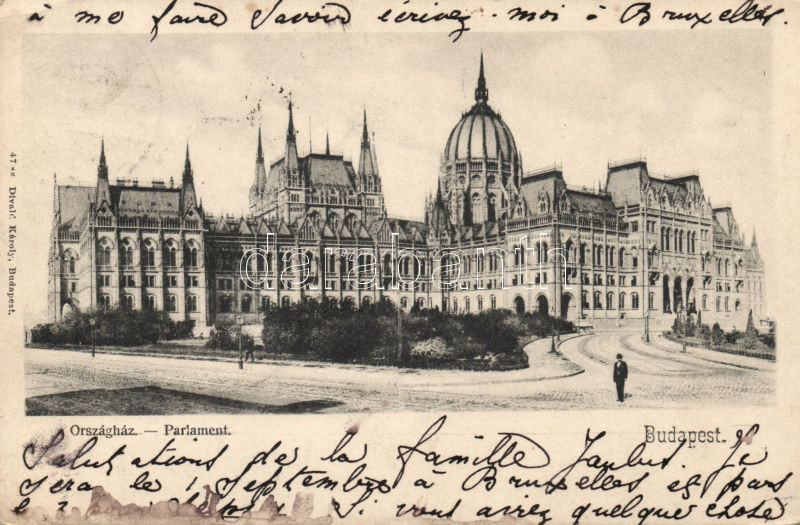 à me faire Savoir écrivez-moi à Bruxelles
47 Divald Károly, Budapest.
darabanth
Országház. — Parlament.
Budapest.
Salutations de la famille Je
Serai le 1 Septembre à Bruxelles et pars
le Si vous avez quelque chose